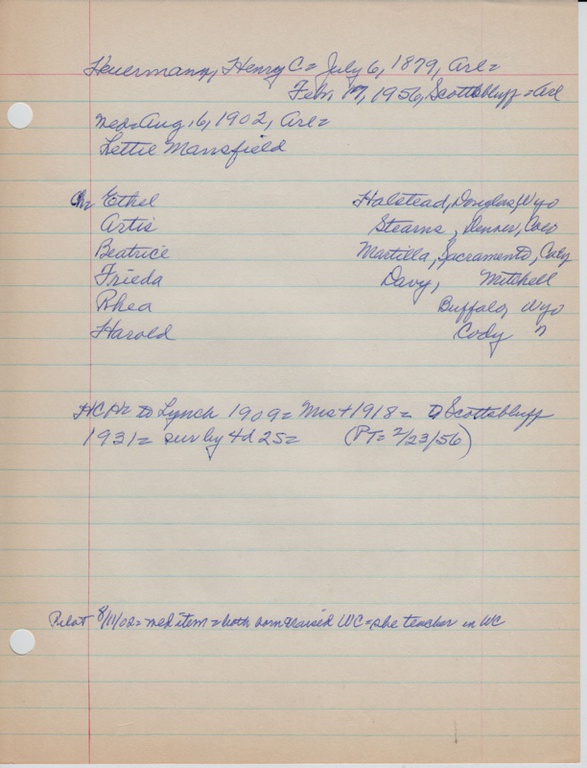 Heuermann, Henry C = July 6, 1879, Arl =
Feb. 17, 1956, Scottsbluff = Arl
med = Aug 16, 1902, Arl =
Lettie Mansfield
Ch Ethel Halstead, Douglas, Wyo
Artis Stearns, Denver, Colo
Beatrice Martilla, Sacramento, Calif
Frieda Davy, Mitchell
Rhea Buffalo, Wyo
Harold Cody "
HCH to Lynch 1909 = 1918 = to Scottsbluff
1931 = sur by 4d 2s = (PT = 2/23/56)
Pilot 8/11/02 = med item = both born & raised WC = she teacher in WC